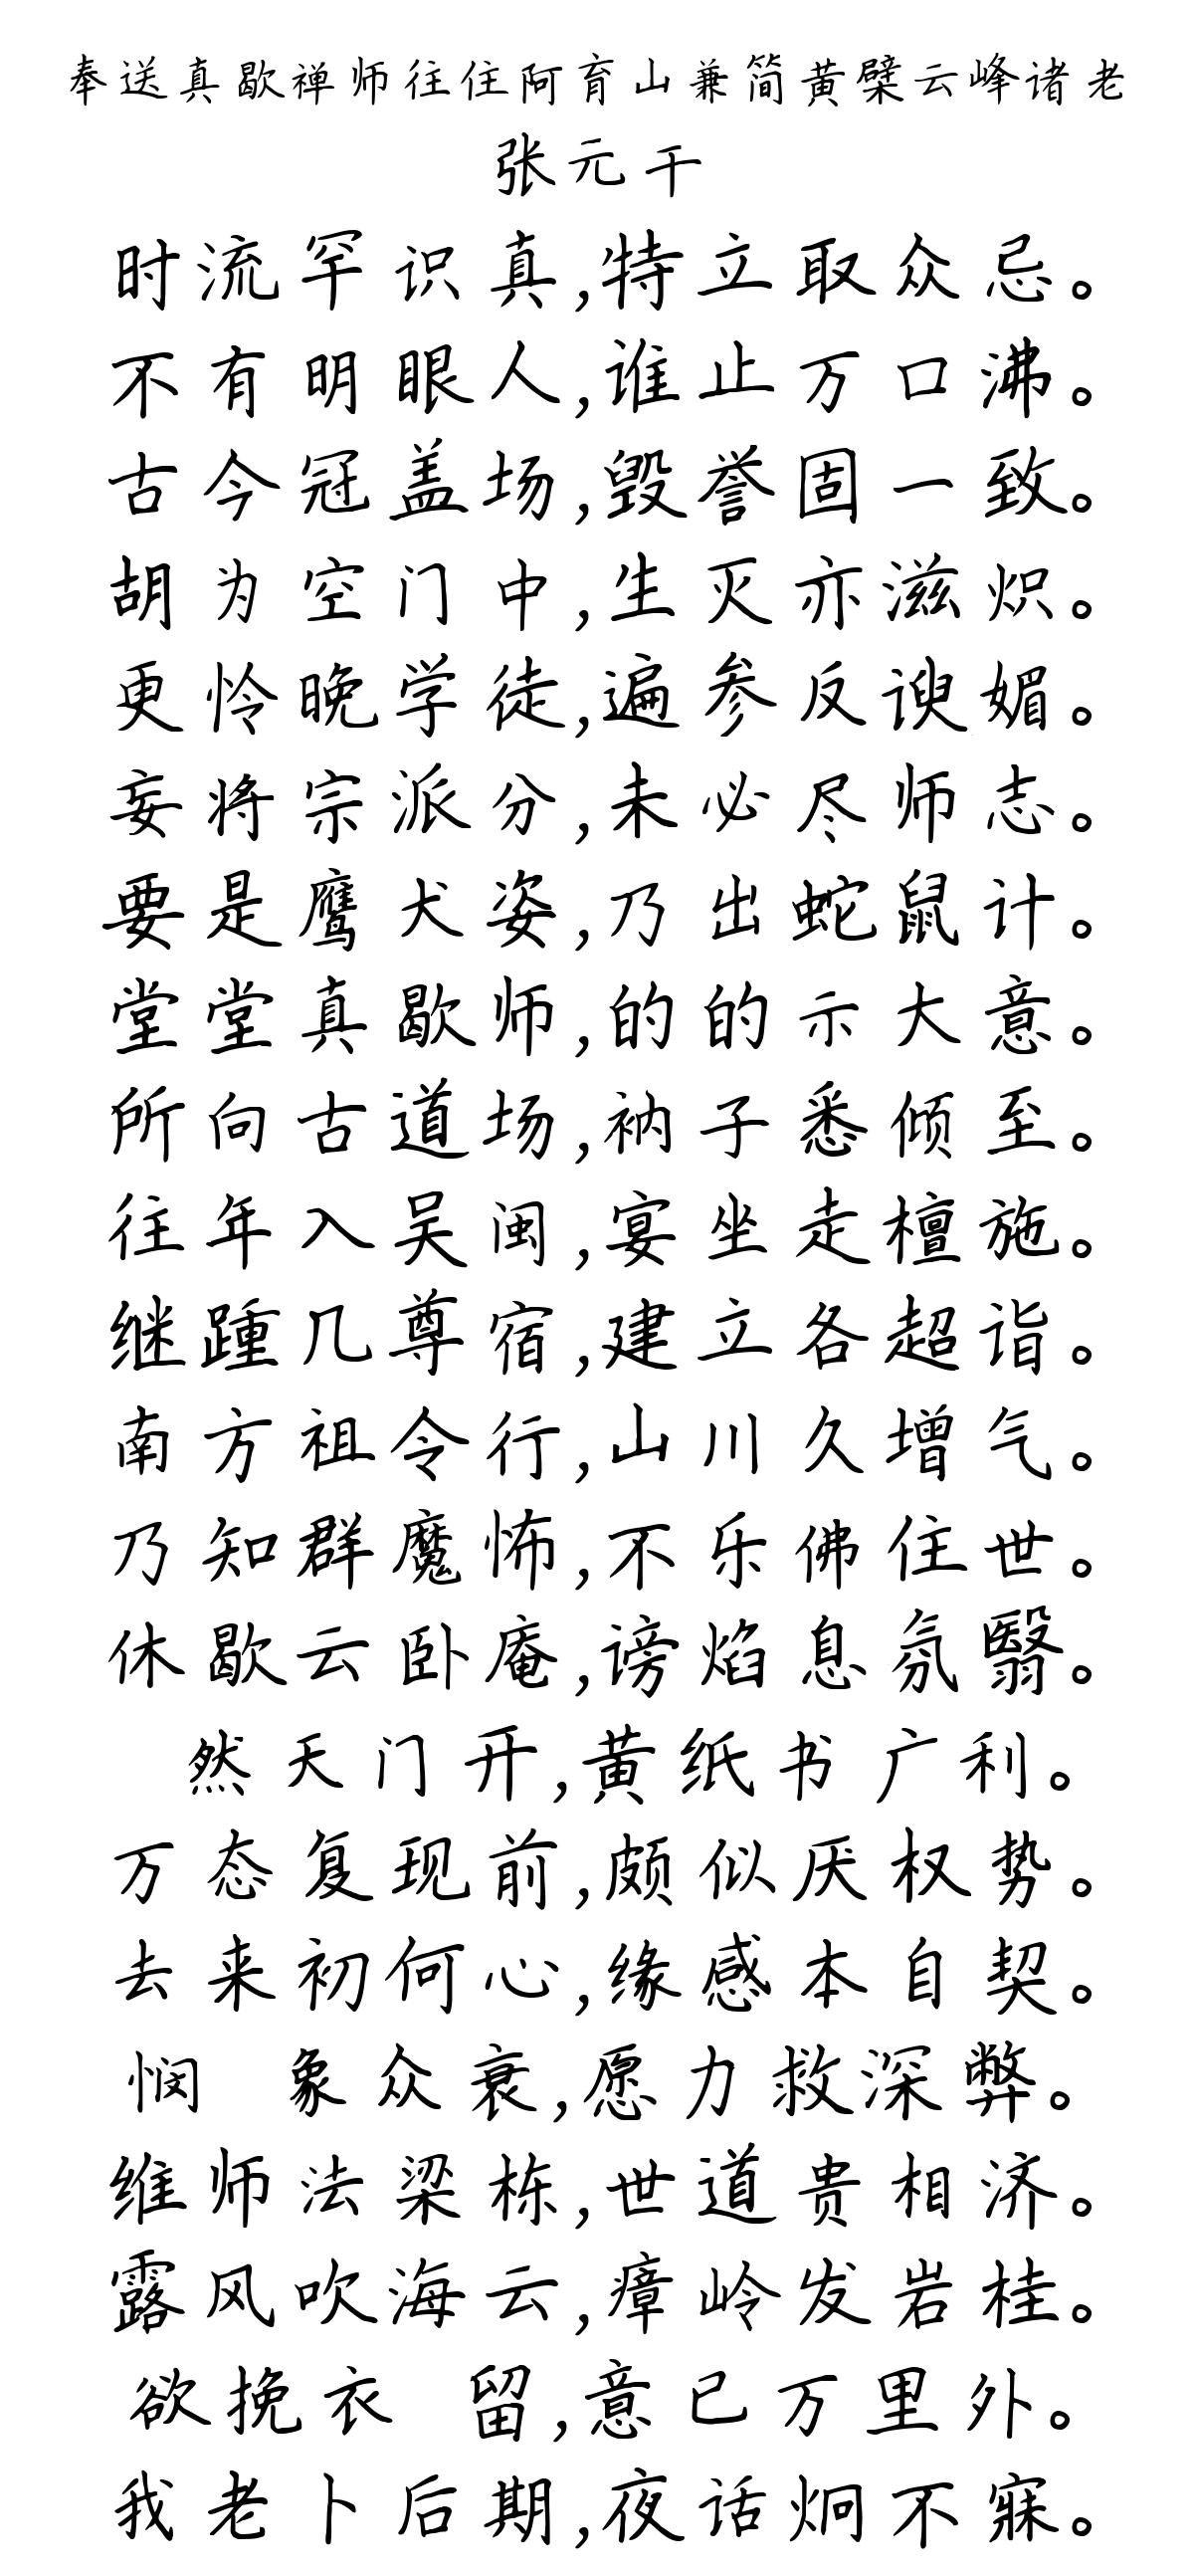 奉送真歇禅师往住阿育山兼简黄檗云峰诸老
张元干
时流罕识真,特立取众忌。
不有明眼人,谁止万口沸。
古今冠盖场,毁誉固一致。
胡为空门中,生灭亦滋炽。
更怜晚学徒,遍参反谀媚。
妄将宗派分,未必尽师志。
要是鹰犬姿,乃出蛇鼠计。
堂堂真歇师,的的示大意。
所向古道场,衲子悉倾至。
往年入吴闽,宴坐走檀施。
继踵几尊宿,建立各超诣。
南方祖令行,山川久增气。
乃知群魔怖,不乐佛住世。
休歇云卧庵,谤焰息氛翳。
然天门开,黄纸书广利。
万态复现前,颇似厌权势。
去来初何心,缘感本自契。
悯 象众衰,愿力救深弊。
维师法梁栋,世道贵相济。
露风吹海云,瘴岭发岩桂。
欲挽衣 留,意已万里外。
我老卜后期,夜话炯不寐。